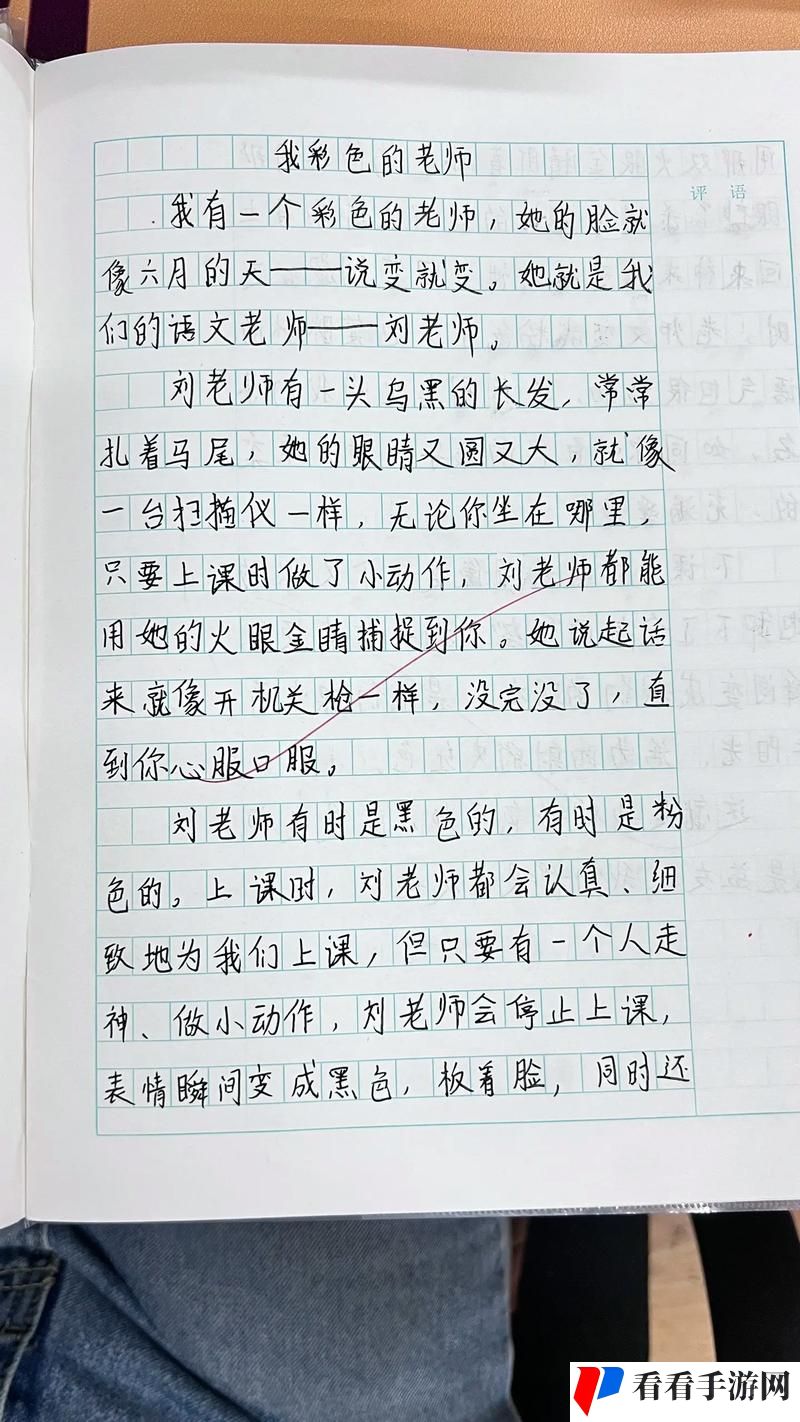 我彩色的老师
评语
我有一个彩色的老师，她的脸就
像六月的天——说变就变。她就是我
们的语文老师——刘老师。
刘老师有一头乌黑的长发，常常
扎着马尾，她的眼睛又圆又大，就像
一台扫描仪一样，无论你坐在哪里，
只要上课时做了小动作，刘老师都能
用她的火眼金睛捕捉到你。她说起话
来就像开机关枪一样，没完没了，直
到你心服口服。
刘老师有时是黑色的，有时是粉
色的。上课时，刘老师都会认真、细
致地为我们上课，但只要有一个人走
神、做小动作，刘老师会停止上课，
表情瞬间变成黑色，板着脸，同时还
看看手游网